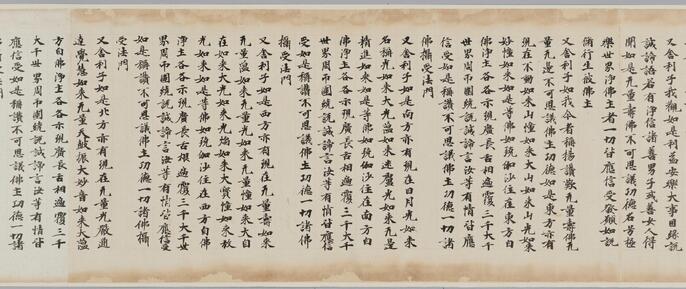 又舍利子我觀如是利益安樂大事因緣說
誠諦語若有淨信諸善男子或善女人得
聞如是无量壽佛不可思議功德名号極
樂世界淨佛土者一切皆應信受發願如說
修行生彼佛土
又舍利子如我今者稱揚讚歎无量壽佛无
量无邊不可思議佛土功德如是東方亦有
現在不動如來山幢如來大山如來山光如來
妙幢如來如是等佛如殑伽沙住在東方自
佛淨土各各示現廣長舌相遍覆三千大千
世界周帀圍繞說誠諦言汝等有情皆應
信受如是稱讚不可思議佛土功德一切諸
佛攝受法門
又舍利子如是南方亦有現在日月光如來
名稱光如來大光蘊如來迷盧光如來无邊
精進如來如是等佛如殑伽沙住在南方自
佛淨土各各示現廣長舌相遍覆三千大千
世界周帀圍繞說誠諦言汝等有情皆應信
受如是稱讚不可思議佛土功德一切諸佛
攝受法門
又舍利子如是西方亦有現在无量壽如來
无量蘊如來无量光如來无量幢如來大自
在如來大光如來光焰如來大寶幢如來放
光如來如是等佛如殑伽沙住在西方自佛
淨土各各示現廣長舌相遍覆三千大千世
界周帀圍繞說誠諦言汝等有情皆應信受
如是稱讚不可思議佛土功德一切諸佛攝
受法門
又舍利子如是北方亦有現在无量光嚴通
達覺慧如來无量天鼓振大妙音如來大蘊
方自佛淨土各各示現廣長舌相遍覆三千
大千世界周帀圍繞說誠諦言汝等有情皆
應信受如是稱讚不可思議佛土功德一切諸